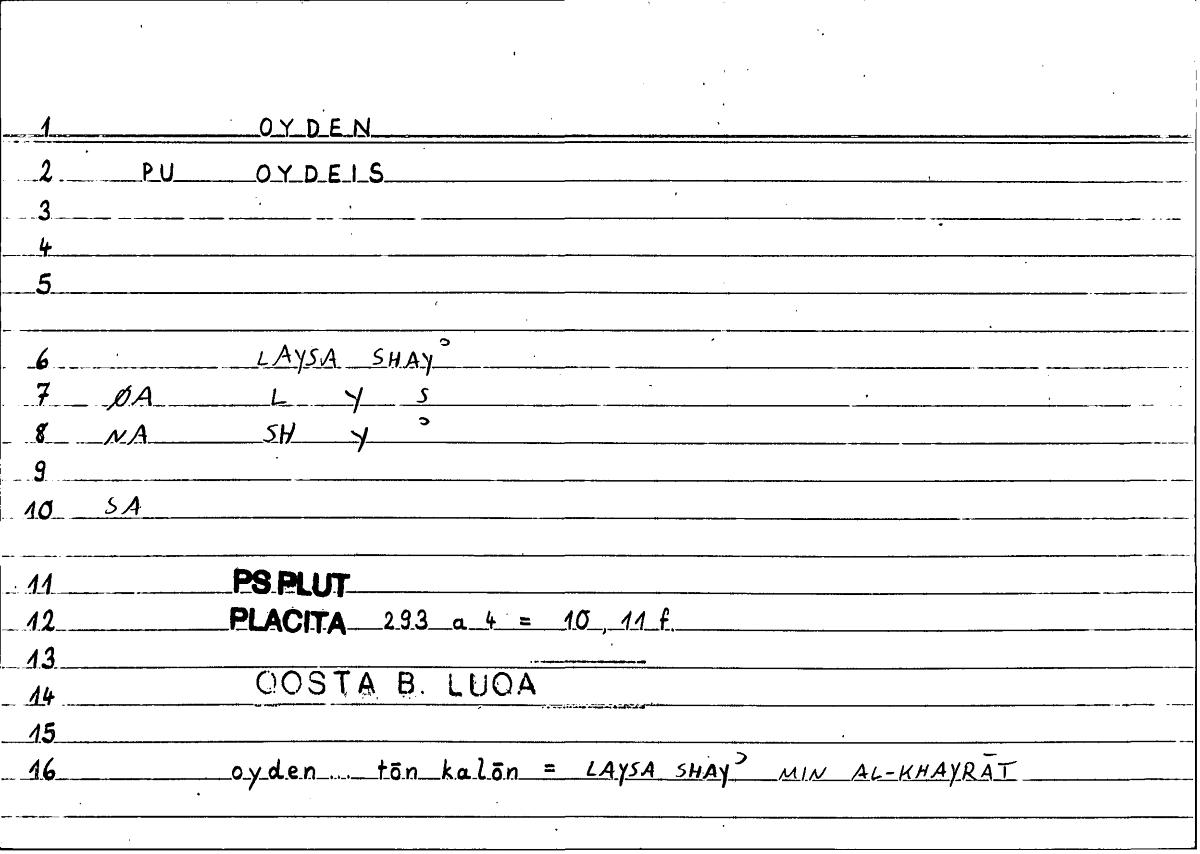 1 OYDEN
2 PU OYDEIS
3
4
5
6 LAYSA SHAYʾ
7 ØA L Y S
8 NA SH Y ʾ
9
10 SA
11 PS.PLUT
12 PLACITA 293 a 4 = 10, 11 f.
13
14 QOSTA B. LUQA
15
16 oyden... tōn kalōn = LAYSA SHAYʾ MIN AL-KHAYRĀT